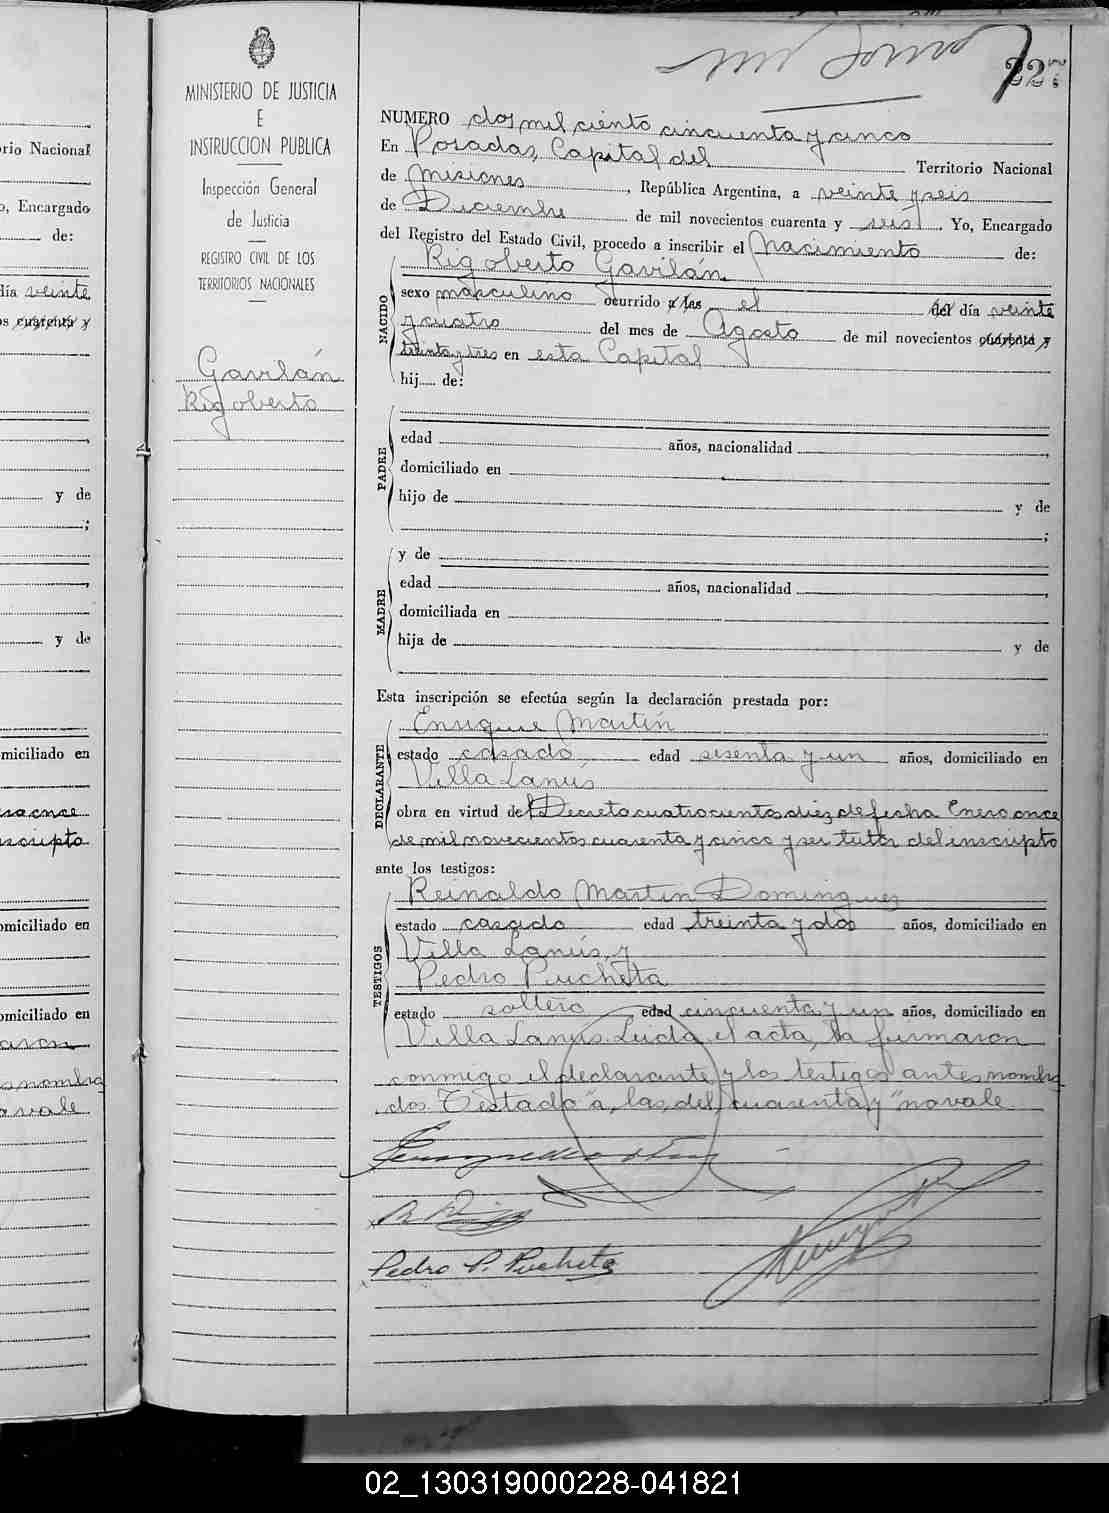 227
MINISTERIO DE JUSTICIA
E
INSTRUCCION PUBLICA
Inspección General
de Justicia
REGISTRO CIVIL DE LOS
TERRITORIOS NACIONALES
Gavilán
Rigoberto
NUMERO dos mil ciento cincuenta y cinco
En Posadas, Capital del Territorio Nacional
de Misiones, República Argentina, a veinte y seis
de Diciembre de mil novecientos cuarenta y seis. Yo, Encargado
del Registro del Estado Civil, procedo a inscribir el Nacimiento de:
NACIDO
Rigoberto Gavilán
sexo masculino ocurrido a las el del día veinte
y cuatro del mes de Agosto de mil novecientos cuarenta y
treinta y tres en esta Capital
hij de:
PADRE
edad años, nacionalidad ,
domiciliado en
hijo de y de
;
MADRE
y de
edad años, nacionalidad ,
domiciliada en
hija de y de
Esta inscripción se efectúa según la declaración prestada por:
DECLARANTE
Enrique Martin
estado casado edad sesenta y un años, domiciliado en
Villa Lanús
obra en virtud del Decreto cuatrocientos diez de fecha Enero once
de mil novecientos cuarenta y cinco y ser tutor del inscripto
ante los testigos:
TESTIGOS
Reinaldo Martin Dominguez
estado casado edad treinta y dos años, domiciliado en
Villa Lanús, y
Pedro Pucheta
estado soltero edad cincuenta y un años, domiciliado en
Villa Lanús. Leida el acta, la firmaron
conmigo el declarante y los testigos antes nombra
dos. Testado "a, las, del, cuarenta y" no vale
Pedro P. Pucheta
rio Nacional
o, Encargado
de:
día veinte
os cuarenta y
y de
;
,
y de
miciliado en
ro once
inscripto
omiciliado en
omiciliado en
maron
s nombra
no vale
02_130319000228-041821